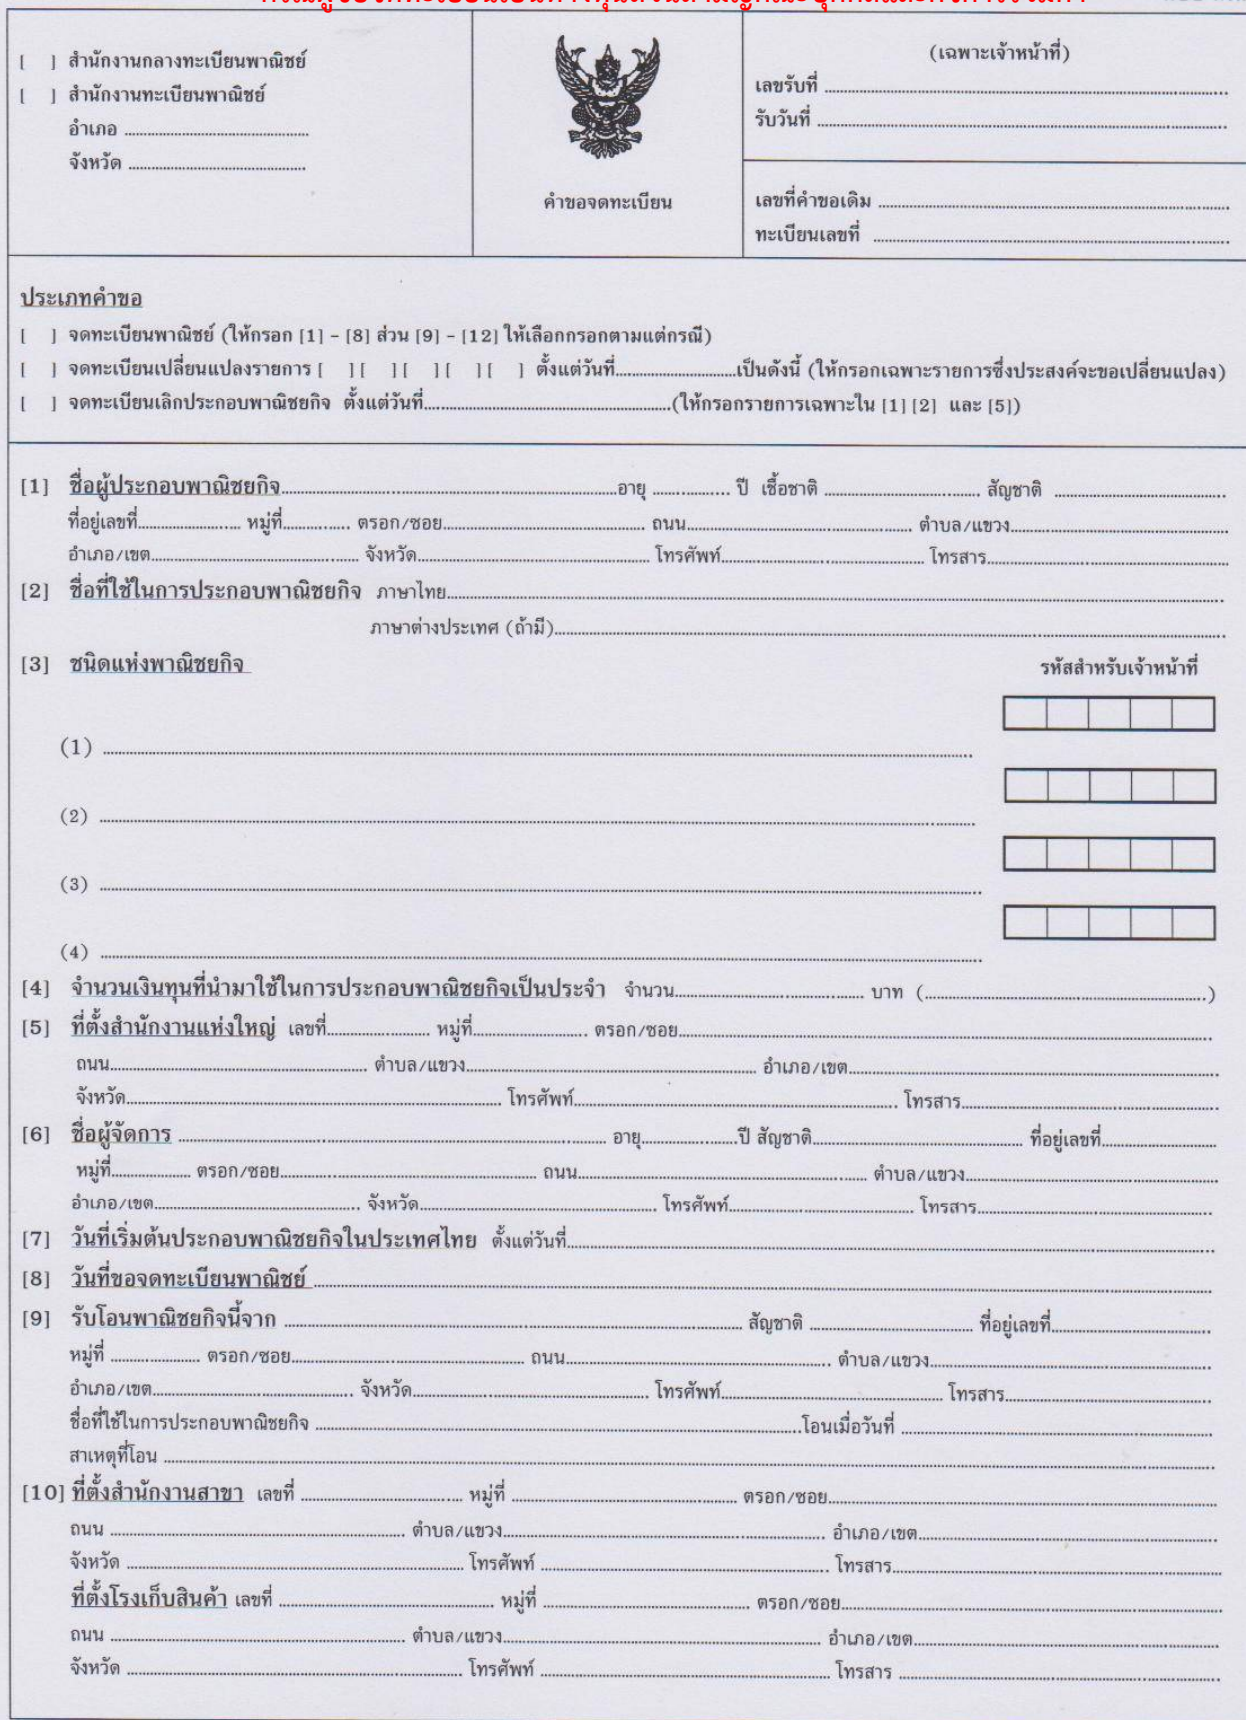 [ ] สำนักงานกลางทะเบียนพาณิชย์
[ ] สำนักงานทะเบียนพาณิชย์
อำเภอ ........................
จังหวัด ........................
คำขอจดทะเบียน
(เฉพาะเจ้าหน้าที่)
เลขรับที่ ........................
รับวันที่ ........................
เลขที่คำขอเดิม ........................
ทะเบียนเลขที่ ........................
ประเภทคำขอ
[ ] จดทะเบียนพาณิชย์ (ให้กรอก [1] - [8] ส่วน [9] - [12] ให้เลือกกรอกตามแต่กรณี)
[ ] จดทะเบียนเปลี่ยนแปลงรายการ [ ][ ][ ][ ][ ] ตั้งแต่วันที่................เป็นดังนี้ (ให้กรอกเฉพาะรายการซึ่งประสงค์จะขอเปลี่ยนแปลง)
[ ] จดทะเบียนเลิกประกอบพาณิชยกิจ ตั้งแต่วันที่................(ให้กรอกรายการเฉพาะใน [1] [2] และ [5])
[1] ชื่อผู้ประกอบพาณิชยกิจ................อายุ ................ ปี เชื้อชาติ ................ สัญชาติ ................
ที่อยู่เลขที่................ หมู่ที่................ ตรอก/ซอย................ ถนน................ ตำบล/แขวง................
อำเภอ/เขต................ จังหวัด................ โทรศัพท์................ โทรสาร................
[2] ชื่อที่ใช้ในการประกอบพาณิชยกิจ ภาษาไทย................
ภาษาต่างประเทศ (ถ้ามี)................
[3] ชนิดแห่งพาณิชยกิจ รหัสสำหรับเจ้าหน้าที่
(1) ................
(2) ................
(3) ................
(4) ................
[4] จำนวนเงินทุนที่นำมาใช้ในการประกอบพาณิชยกิจเป็นประจำ จำนวน................ บาท (................)
[5] ที่ตั้งสำนักงานแห่งใหญ่ เลขที่................ หมู่ที่................ ตรอก/ซอย................
ถนน................ ตำบล/แขวง................ อำเภอ/เขต................
จังหวัด................ โทรศัพท์................ โทรสาร................
[6] ชื่อผู้จัดการ ................ อายุ................ปี สัญชาติ................ ที่อยู่เลขที่................
หมู่ที่................ ตรอก/ซอย................ ถนน................ ตำบล/แขวง................
อำเภอ/เขต................ จังหวัด................ โทรศัพท์................ โทรสาร................
[7] วันที่เริ่มต้นประกอบพาณิชยกิจในประเทศไทย ตั้งแต่วันที่................
[8] วันที่ขอจดทะเบียนพาณิชย์ ................
[9] รับโอนพาณิชยกิจนี้จาก ................ สัญชาติ ................ ที่อยู่เลขที่................
หมู่ที่ ................ ตรอก/ซอย................ ถนน................ ตำบล/แขวง................
อำเภอ/เขต................ จังหวัด................ โทรศัพท์................ โทรสาร................
ชื่อที่ใช้ในการประกอบพาณิชยกิจ ................โอนเมื่อวันที่ ................
สาเหตุที่โอน ................
[10] ที่ตั้งสำนักงานสาขา เลขที่ ................ หมู่ที่ ................ ตรอก/ซอย................
ถนน ................ ตำบล/แขวง................ อำเภอ/เขต................
จังหวัด ................ โทรศัพท์ ................ โทรสาร................
ที่ตั้งโรงเก็บสินค้า เลขที่ ................ หมู่ที่ ................ ตรอก/ซอย................
ถนน ................ ตำบล/แขวง................ อำเภอ/เขต................
จังหวัด ................ โทรศัพท์ ................ โทรสาร ................